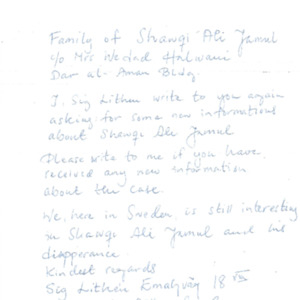 Family of Shawqi Ali Jamul
c/o Mrs Wedad Halwani
Dar al-Aman Bldg.
I, Sig Lithén write to you again
asking for some new informations
about Shawqi Ali Jamul
Please write to me if you have
received any new information
about the case.
We, here in Sweden is still interesting
in Shawqi Ali Jamul and his
disapperance.
Kindest regards
Sig Lithén Emaljväg 18